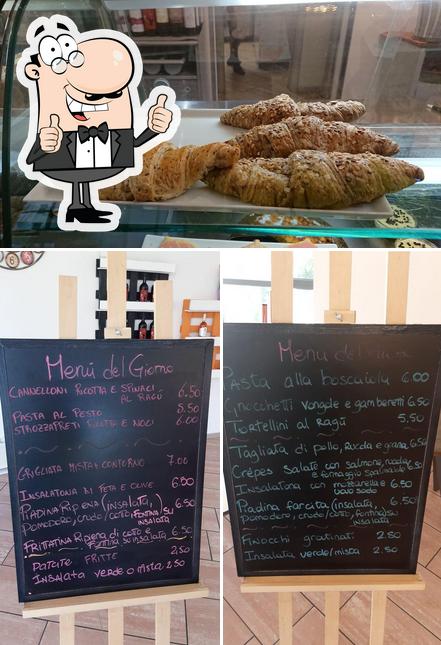 Menù del Giorno
CANNELLONI RICOTTA E SPINACI 6.50
AL RAGÚ
PASTA AL PESTO 5.50
STROZZAPRETI E NOCI 6.00
GRIGLIATA MISTA E CONTORNO 7.00
INSALATONA DI FETA E OLIVE 6.00
PIADINA RIPIENA (INSALATA, 6.50
POMODORO, CRUDO/COTTO, FONTINA/SU
INSALATA)
FRITTATINA RIPIENA DI COTTO E 6.50
FONTINA SU INSALATA
PATATE FRITTE 2.50
INSALATA VERDE O MISTA 2.50
Menù del
Pasta alla boscaiola 6.00
Gnocchetti vongole e gamberetti 6.50
Tortellini al Ragù 5,50
Tagliata di pollo, Rucola e grana 6.50
Crêpes salate con salmone, rucola
e formaggio spalmabile 6.50
Insalatona con mozzarella e 6.50
uovo sodo
Piadina farcita (insalata, 6.50
pomodoro, crudo/cotto, fontina/su
insalata)
Finocchi gratinati 2.50
Insalata verde/mista 2.50